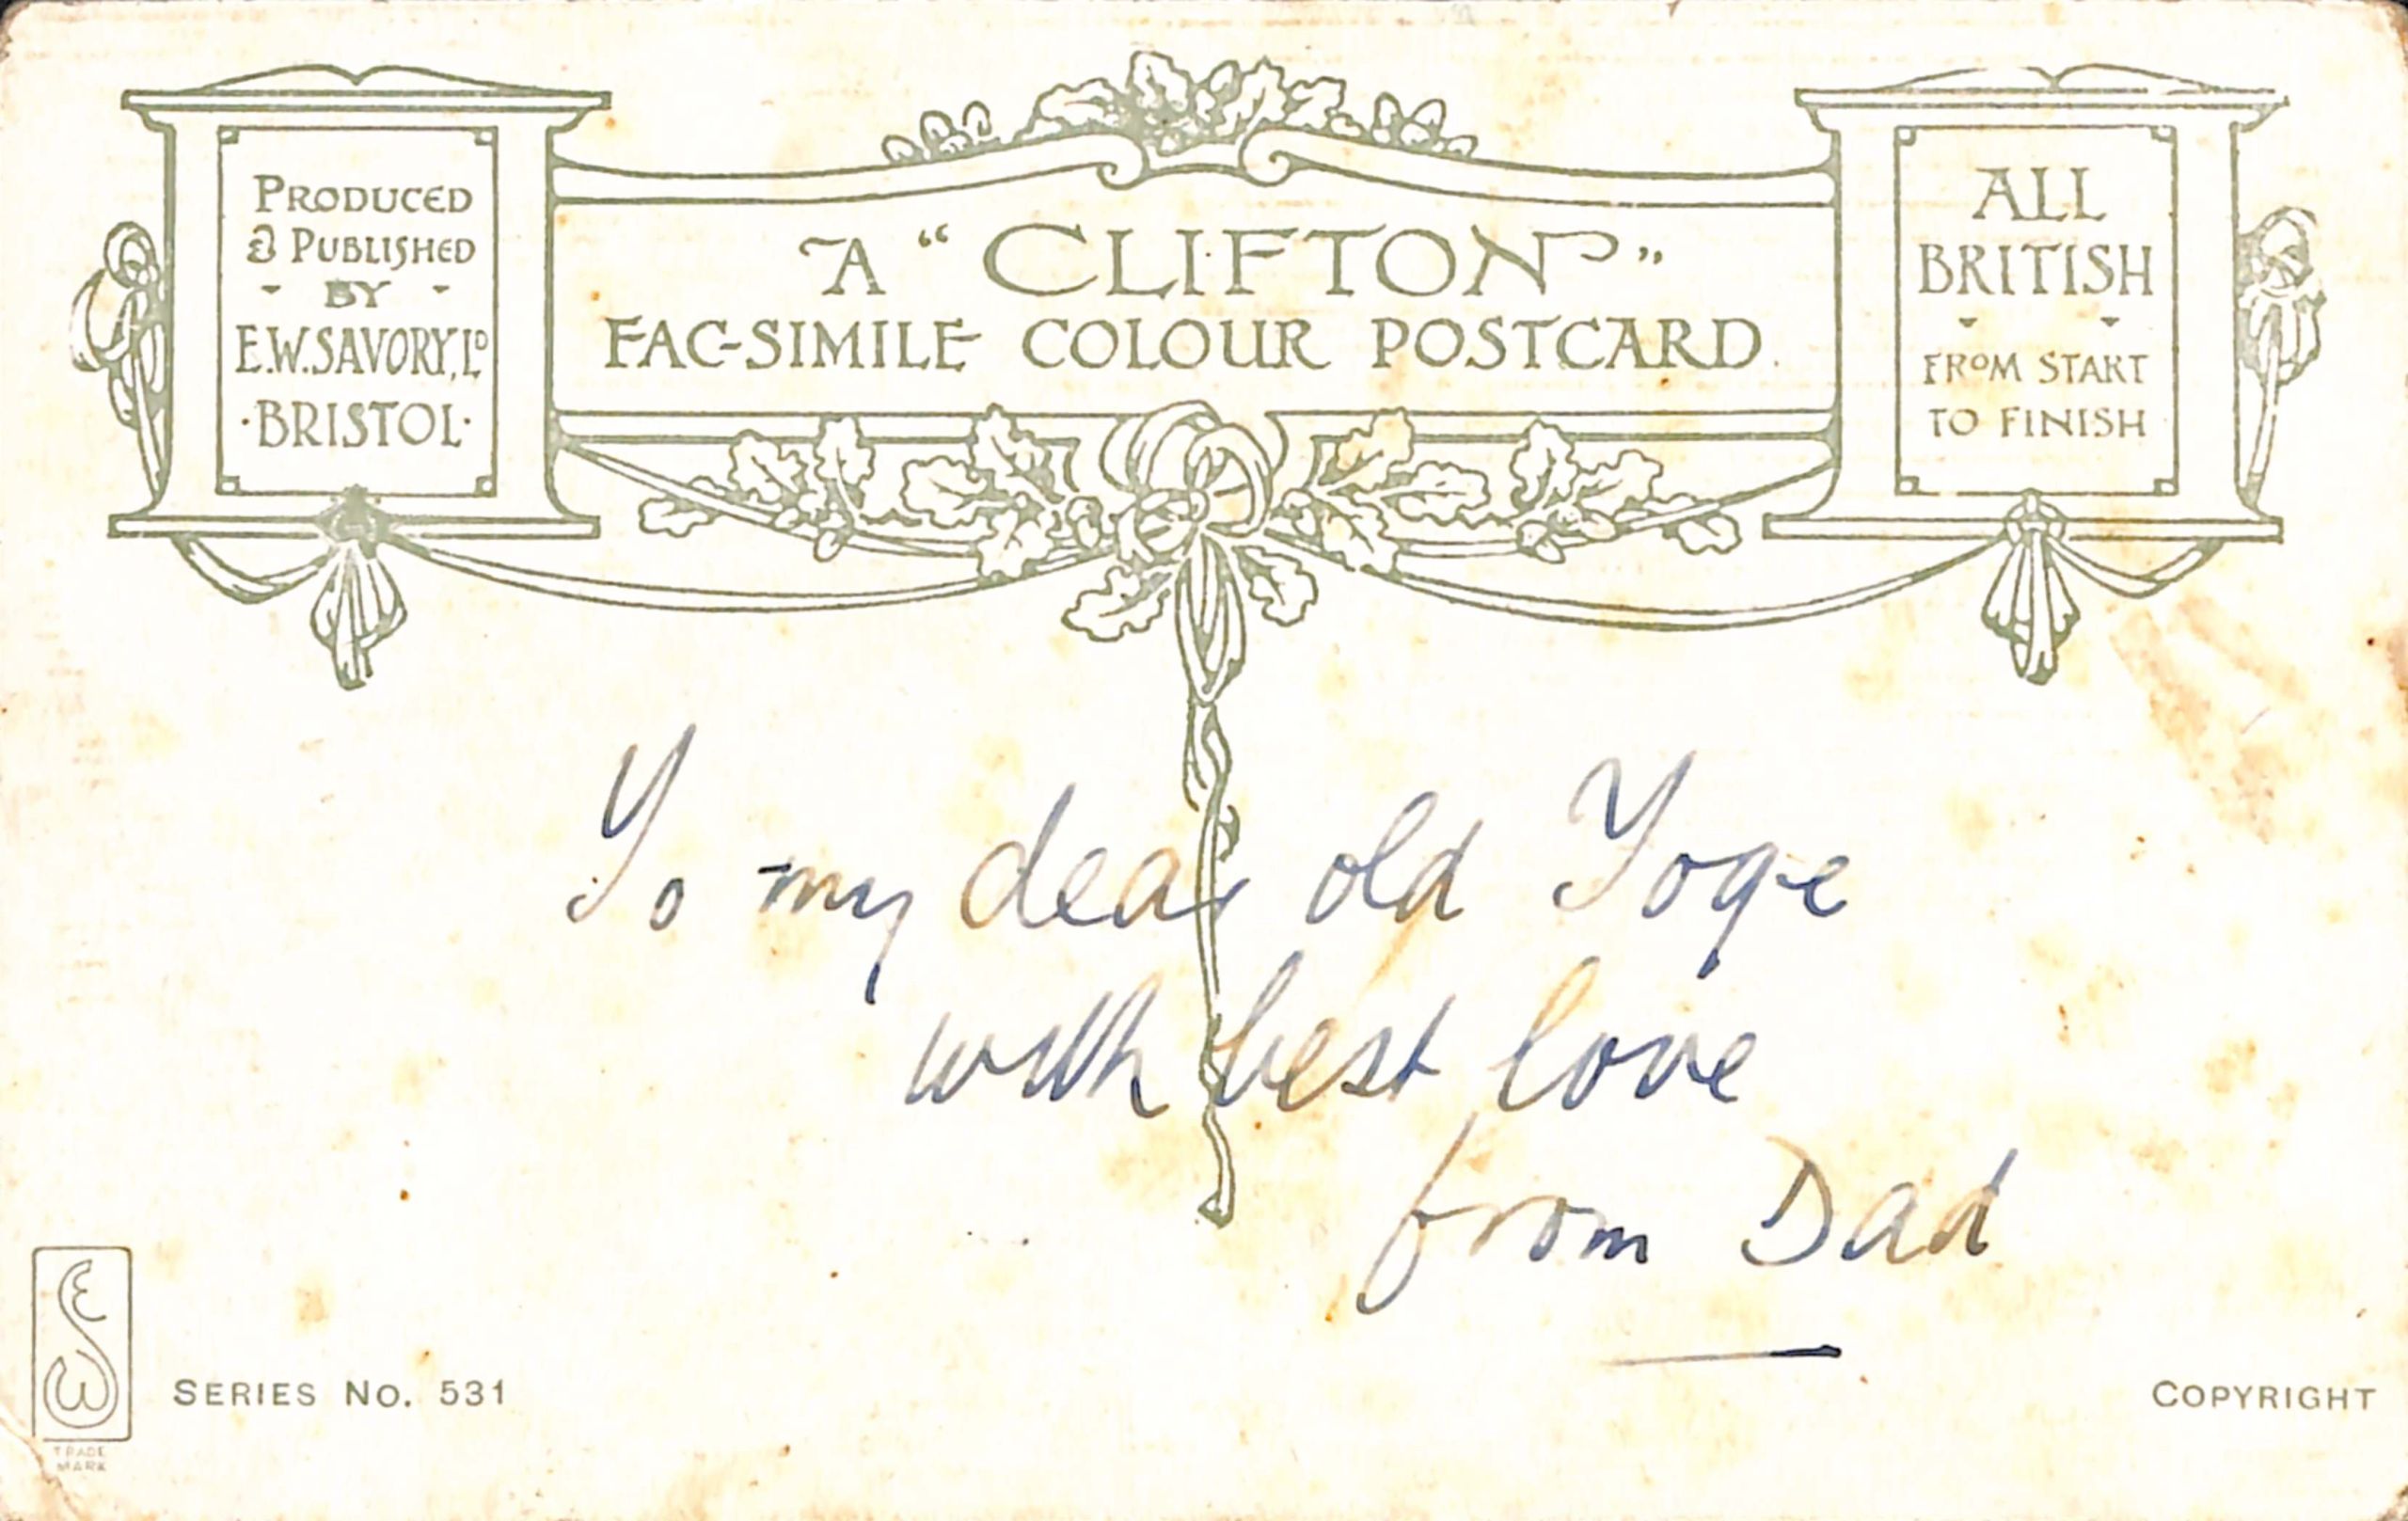 PRODUCED
& PUBLISHED
BY
E.W.SAVORY, Lᴰ
·BRISTOL·
A "CLIFTON"
FAC-SIMILE COLOUR POSTCARD
ALL
BRITISH
FROM START
TO FINISH
To my dear old Toge
with best love
from Dad
SERIES NO. 531
TRADE
MARK
COPYRIGHT